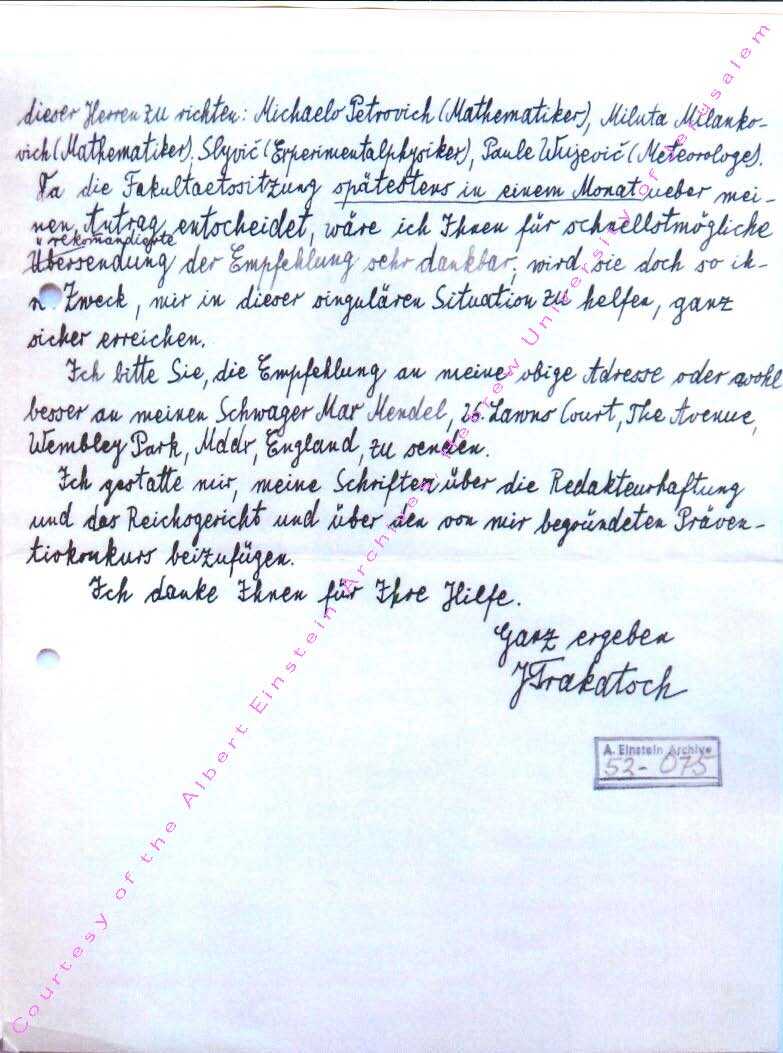 dieser Herren zu richten: Michaelo Petrovich (Mathematiker), Miluta Milanko-
vich (Mathematiker), Slyvič (Experimentalphysiker), Paule Wujevič (Meteorologe).
Da die Fakultaetssitzung spätestens in einem Monat ueber mei-
nen Antrag entscheidet, wäre ich Ihnen für schnellstmögliche
rekomandierte
Übersendung der Empfehlung sehr dankbar; wird sie doch so ih-
n Zweck, mir in dieser singulären Situation zu helfen, ganz
sicher erreichen.
Ich bitte Sie, die Empfehlung an meine obige Adresse oder wohl
besser an meinen Schwager Max Mendel, 26. Lawns Court, The Avenue,
Wembley Park, Mddx, England, zu senden.
Ich gestatte mir, meine Schriften über die Redakteurhaftung
und das Reichsgericht und über den von mir begründeten Präven-
tivkonkurs beizufügen.
Ich danke Ihnen für Ihre Hilfe.
Ganz ergeben
JTrakatsch
A. Einstein Archive
52-075
Courtesy of the Albert Einstein Archives, Hebrew University of Jerusalem